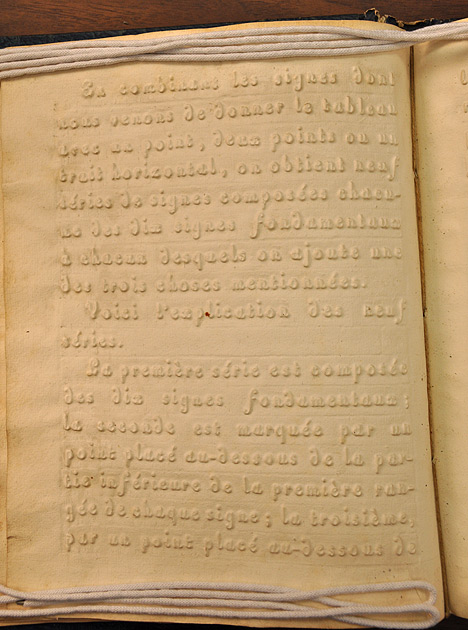 En combinant les signes dont
nous venons de donner le tableau
avec un point, deux points ou un
trait horizontal, on obtient neuf
séries de signes composées chacu-
ne des dix signes fondamentaux
à chacun desquels on ajoute une
des trois choses mentionnées.
Voici l'explication des neuf
séries.
La première série est composée
des dix signes fondamentaux;
la seconde est marquée par un
point placé au-dessous de la par-
tie inférieure de la première ran-
gée de chaque signe; la troisième,
par un point placé au-dessous de